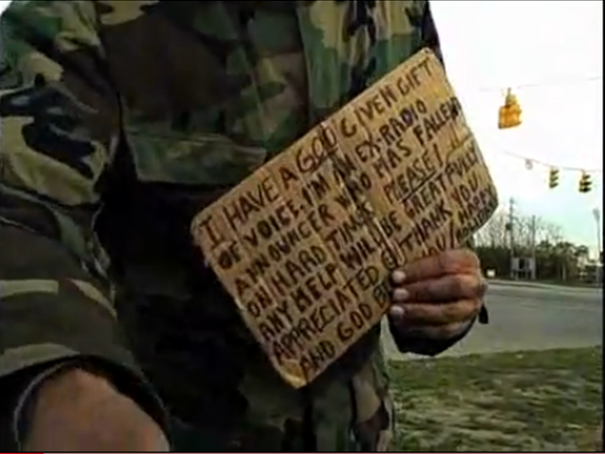 I HAVE A GOD GIVEN GIFT
OF VOICE. I'M AN EX-RADIO
ANNOUNCER WHO HAS FALLEN
ON HARD TIMES. PLEASE!
ANY HELP WILL BE GREATFULLY
APPRECIATED. THANK YOU
AND GOD YOU. HAPPY